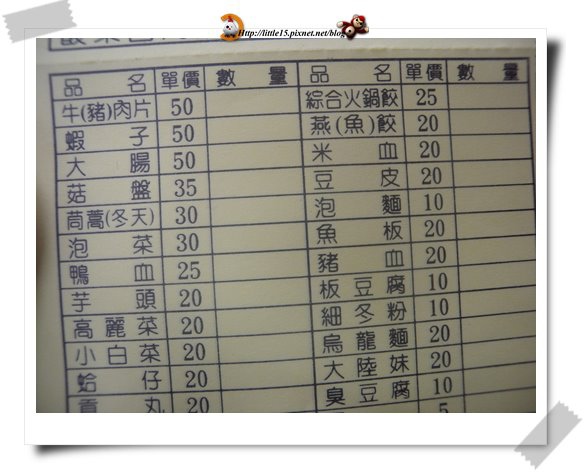 Http://little15.pixnet.net/blog
品 名 單價 數 量 品 名 單價 數 量
牛(豬)肉片 50 綜合火鍋餃 25
蝦 子 50 燕(魚)餃 20
大 腸 50 米 血 20
菇 盤 35 豆 皮 20
茼蒿(冬天) 30 泡 麵 10
泡 菜 30 魚 板 20
鴨 血 25 豬 血 20
芋 頭 20 板豆腐 10
高麗菜 20 細冬粉 10
小白菜 20 烏龍麵 20
蛤 仔 20 大陸妹 20
貢 丸 20 臭豆腐 10
5